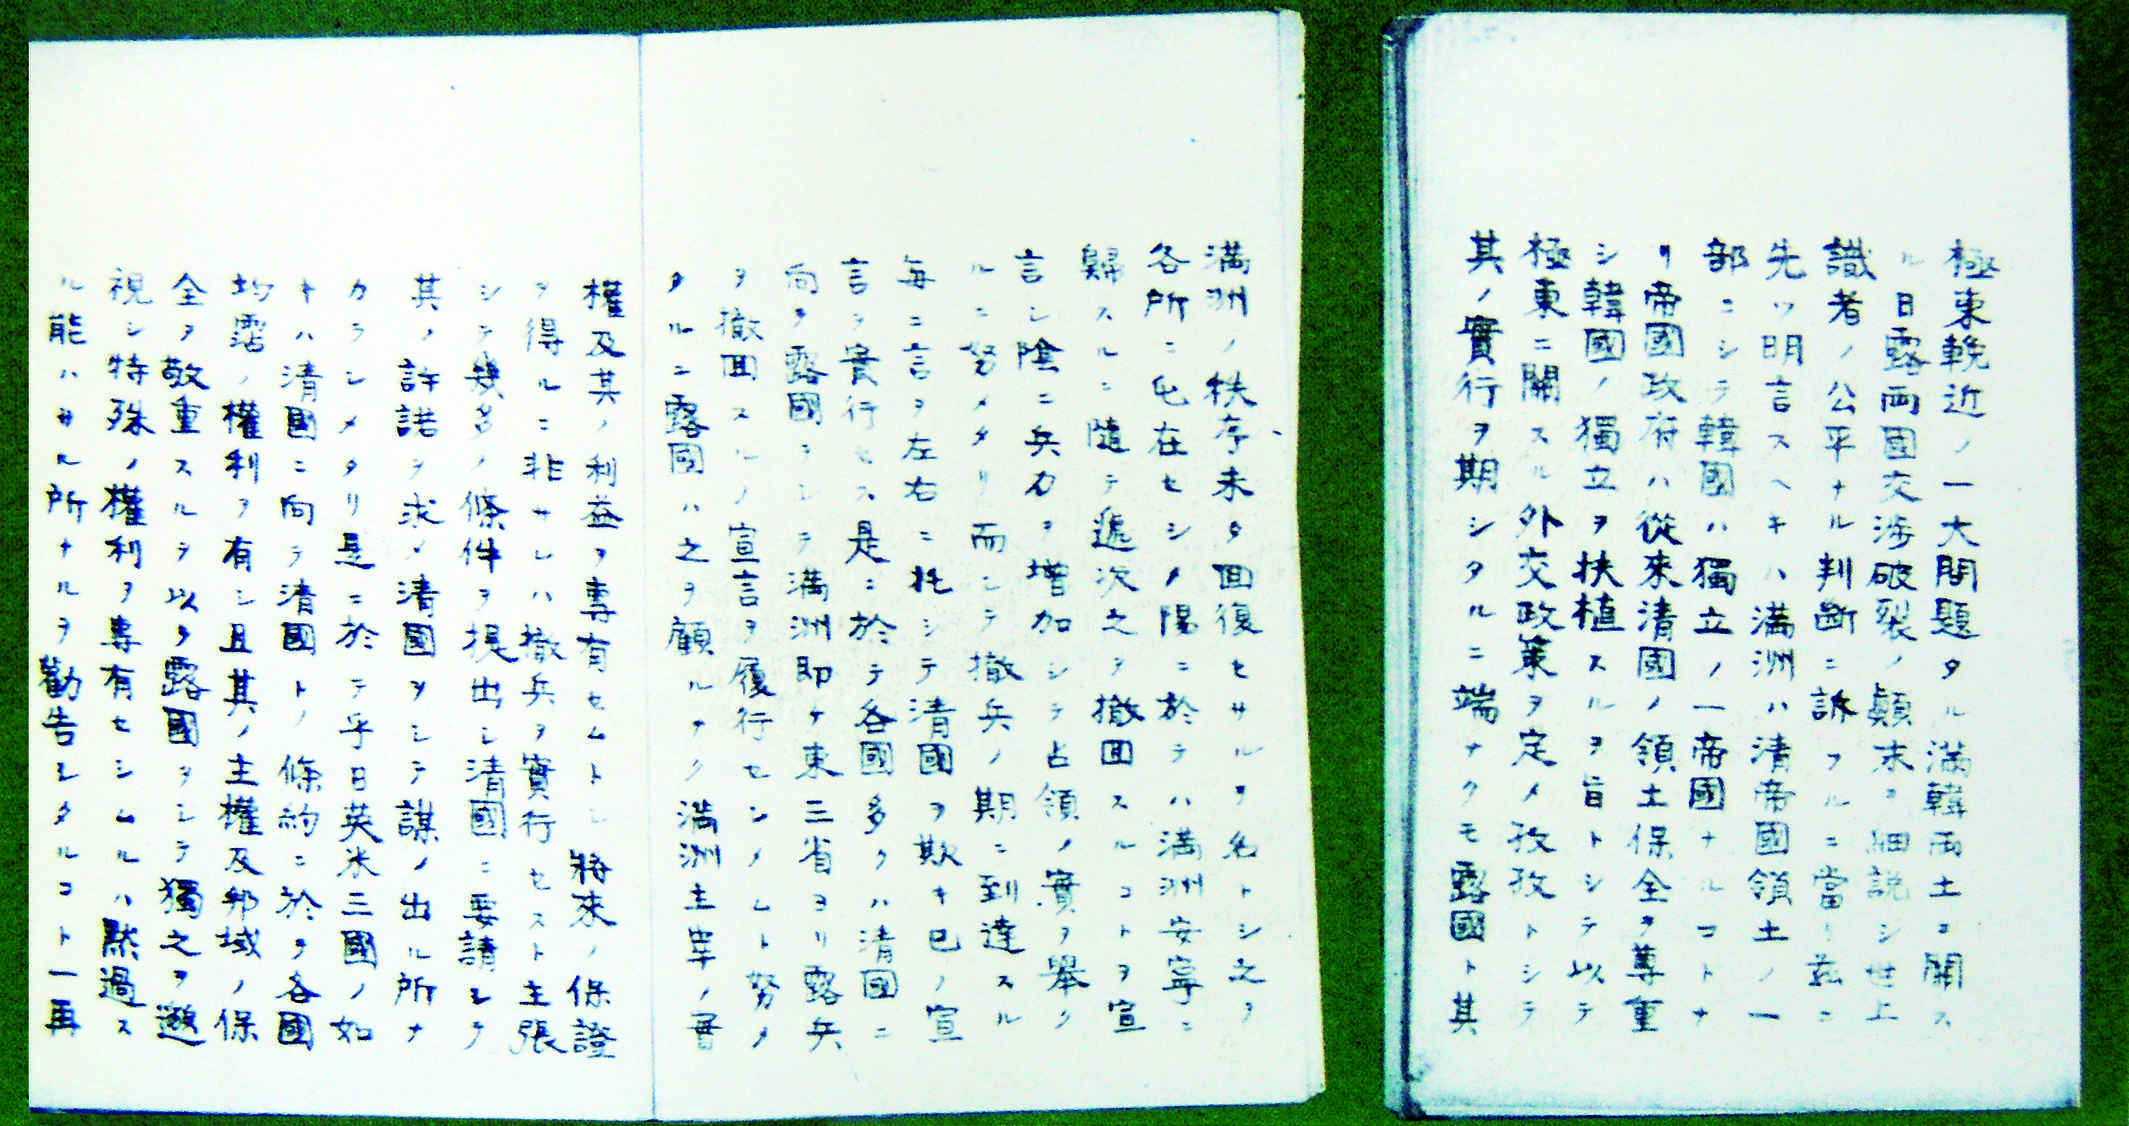 極東輓近ノ一大問題タル満韓両土ニ關ス
ル日露両國交渉破裂ノ顛末ヲ細説シ世上
識者ノ公平ナル判断ニ訴フルニ當リ茲ニ
先ツ明言スヘキハ満洲ハ清帝國領土ノ一
部ニシテ韓國ハ獨立ノ一帝國ナルコトナ
リ帝國政府ハ從來清國ノ領土保全ヲ尊重
シ韓國ノ獨立ヲ扶植スルヲ旨トシテ以テ
極東ニ關スル外交政策ヲ定メ孜孜トシテ
其ノ實行ヲ期シタルニ端ナクモ露國ト其
満洲ノ秩序未タ回復セサルヲ名トシ之ヲ
各所ニ屯在セシメ陽ニ於テハ満洲安寧ニ
歸スルニ隨テ逓次之ヲ撤回スルコトヲ宣
言シ陰ニ兵力ヲ増加シテ占領ノ實ヲ舉ク
ルニ努メタリ而シテ撤兵ノ期ニ到達スル
毎ニ言ヲ左右ニ托シテ清國ヲ欺キ巳ノ宣
言ヲ實行セス是ニ於テ各國多クハ清國ニ
向テ露國ヲシテ満洲即ケ東三省ヨリ露兵
ヲ撤回スルノ宣言ヲ履行センメムト努メ
タルニ露國ハ之ヲ顧ルナク満洲主宰ノ實
權及其ノ利益ヲ專有セムトシ將來ノ保證
ヲ得ルニ非サレハ撤兵ヲ實行セスト主張
シテ幾多ノ條件ヲ提出シ清國ニ要請シテ
其ノ許諾ヲ求メ清國ヲシテ謀ノ出ル所ナ
カラシメタリ是ニ於テ乎日英米三國ノ如
キハ清國ニ向テ清國トノ條約ニ於テ各國
均霑ノ權利ヲ有シ且其ノ主權及邦域ノ保
全ヲ敬重スルヲ以テ露國ヲシテ獨之ヲ邈
視シ特殊ノ權利ヲ專有セシムルハ黙過ス
ル能ハサル所ナルヲ勸告シタルコト一再